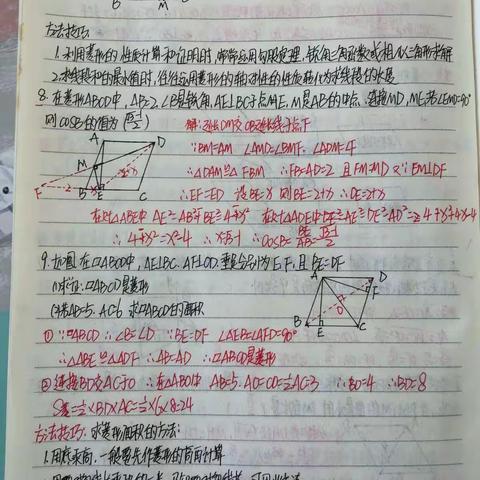 B M
方法技巧:
1.利用菱形的性质计算和证明时,常常运用勾股定理,锐角三角函数或相似三角形求解
2.求线段和的最小值时,往往运用菱形的轴对称性的性质转化为求线段的长度
8.在菱形ABCD中,AB=2,∠B是锐角,AE⊥BC于点E,M是AB的中点,连接MD,ME,若∠EMD=90°
则cosB的值为(√3-1/2)
解:延长DM交CB延长线于点F
∵BM=AM ∠AMD=∠BMF ∠ADM=∠F
∴△DAM≌△FBM ∴FB=AD=2 且FM=MD 又∵EM⊥DF
∴EF=ED 设BE=x 则EF=2+x ∴DE=2+x
在Rt△ABE中 AE²=AB²-BE²=4-x² 在Rt△ADE中 AE²=DE²-AD²=4+x²+4x-4
∴4-x²=x²+4x ∴x=√3-1 ∴cosB=BE/AB=√3-1/2
9.如图,在▱ABCD中,AE⊥BC,AF⊥CD,垂足分别为E,F,且BE=DF
(1)求证:▱ABCD是菱形
(2)若AB=5,AC=6 求▱ABCD的面积
① ∵▱ABCD ∴∠B=∠D ∵BE=DF ∠AEB=∠AFD=90°
∴△ABE≌△ADF ∴AB=AD ∴▱ABCD是菱形
② 连接BD交AC于O ∴在△ABO中 AB=5 AO=CO=½AC=3 ∴BO=4 ∴BD=8
S菱=½×BD×AC=½×6×8=24
方法技巧:求菱形面积的方法:
1.用底乘高,一般要先作菱形的高再计算
A D M F B E C
2 x
A D F O B E C